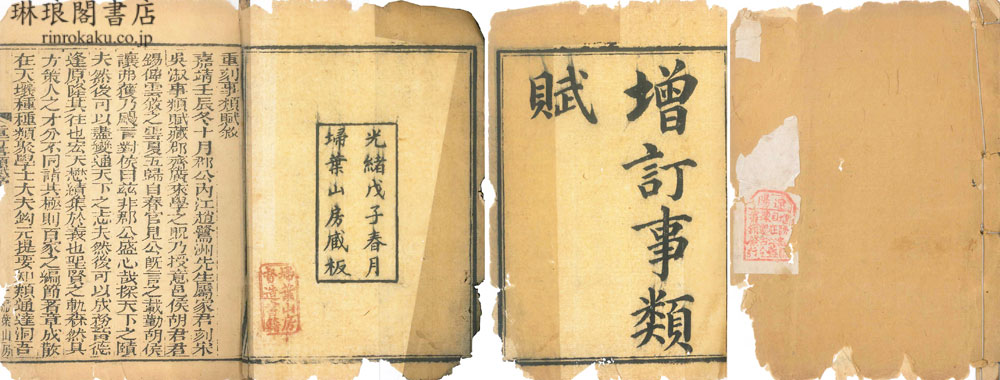 琳琅閣書店
rinrokaku.co.jp
重刻事類賦敘
嘉靖壬辰冬十月郡公內江趙鷺洲先生屬家君刻宋
吳淑事類賦藏郡齋廣來學之
乃授意邑侯胡君君
錫俾雲從之雲夏五歸自春官見公旣言之載勤胡侯
讓弗獲乃颺言對侯曰玆非郡公盛心哉探天下之賾
夫然後可以盡變通天下之志夫然後可以成務畜德
逢原隆其往也宏天懋績集於義也聖賢之軌森然具
方策人之才分不同詣其極則百家之編簡著章成散
在天壤種種類聚學士大夫鈎元提要知類通達洞吾
掃葉山房
光緒戊子春月
埽葉山房藏板
增訂事類
賦